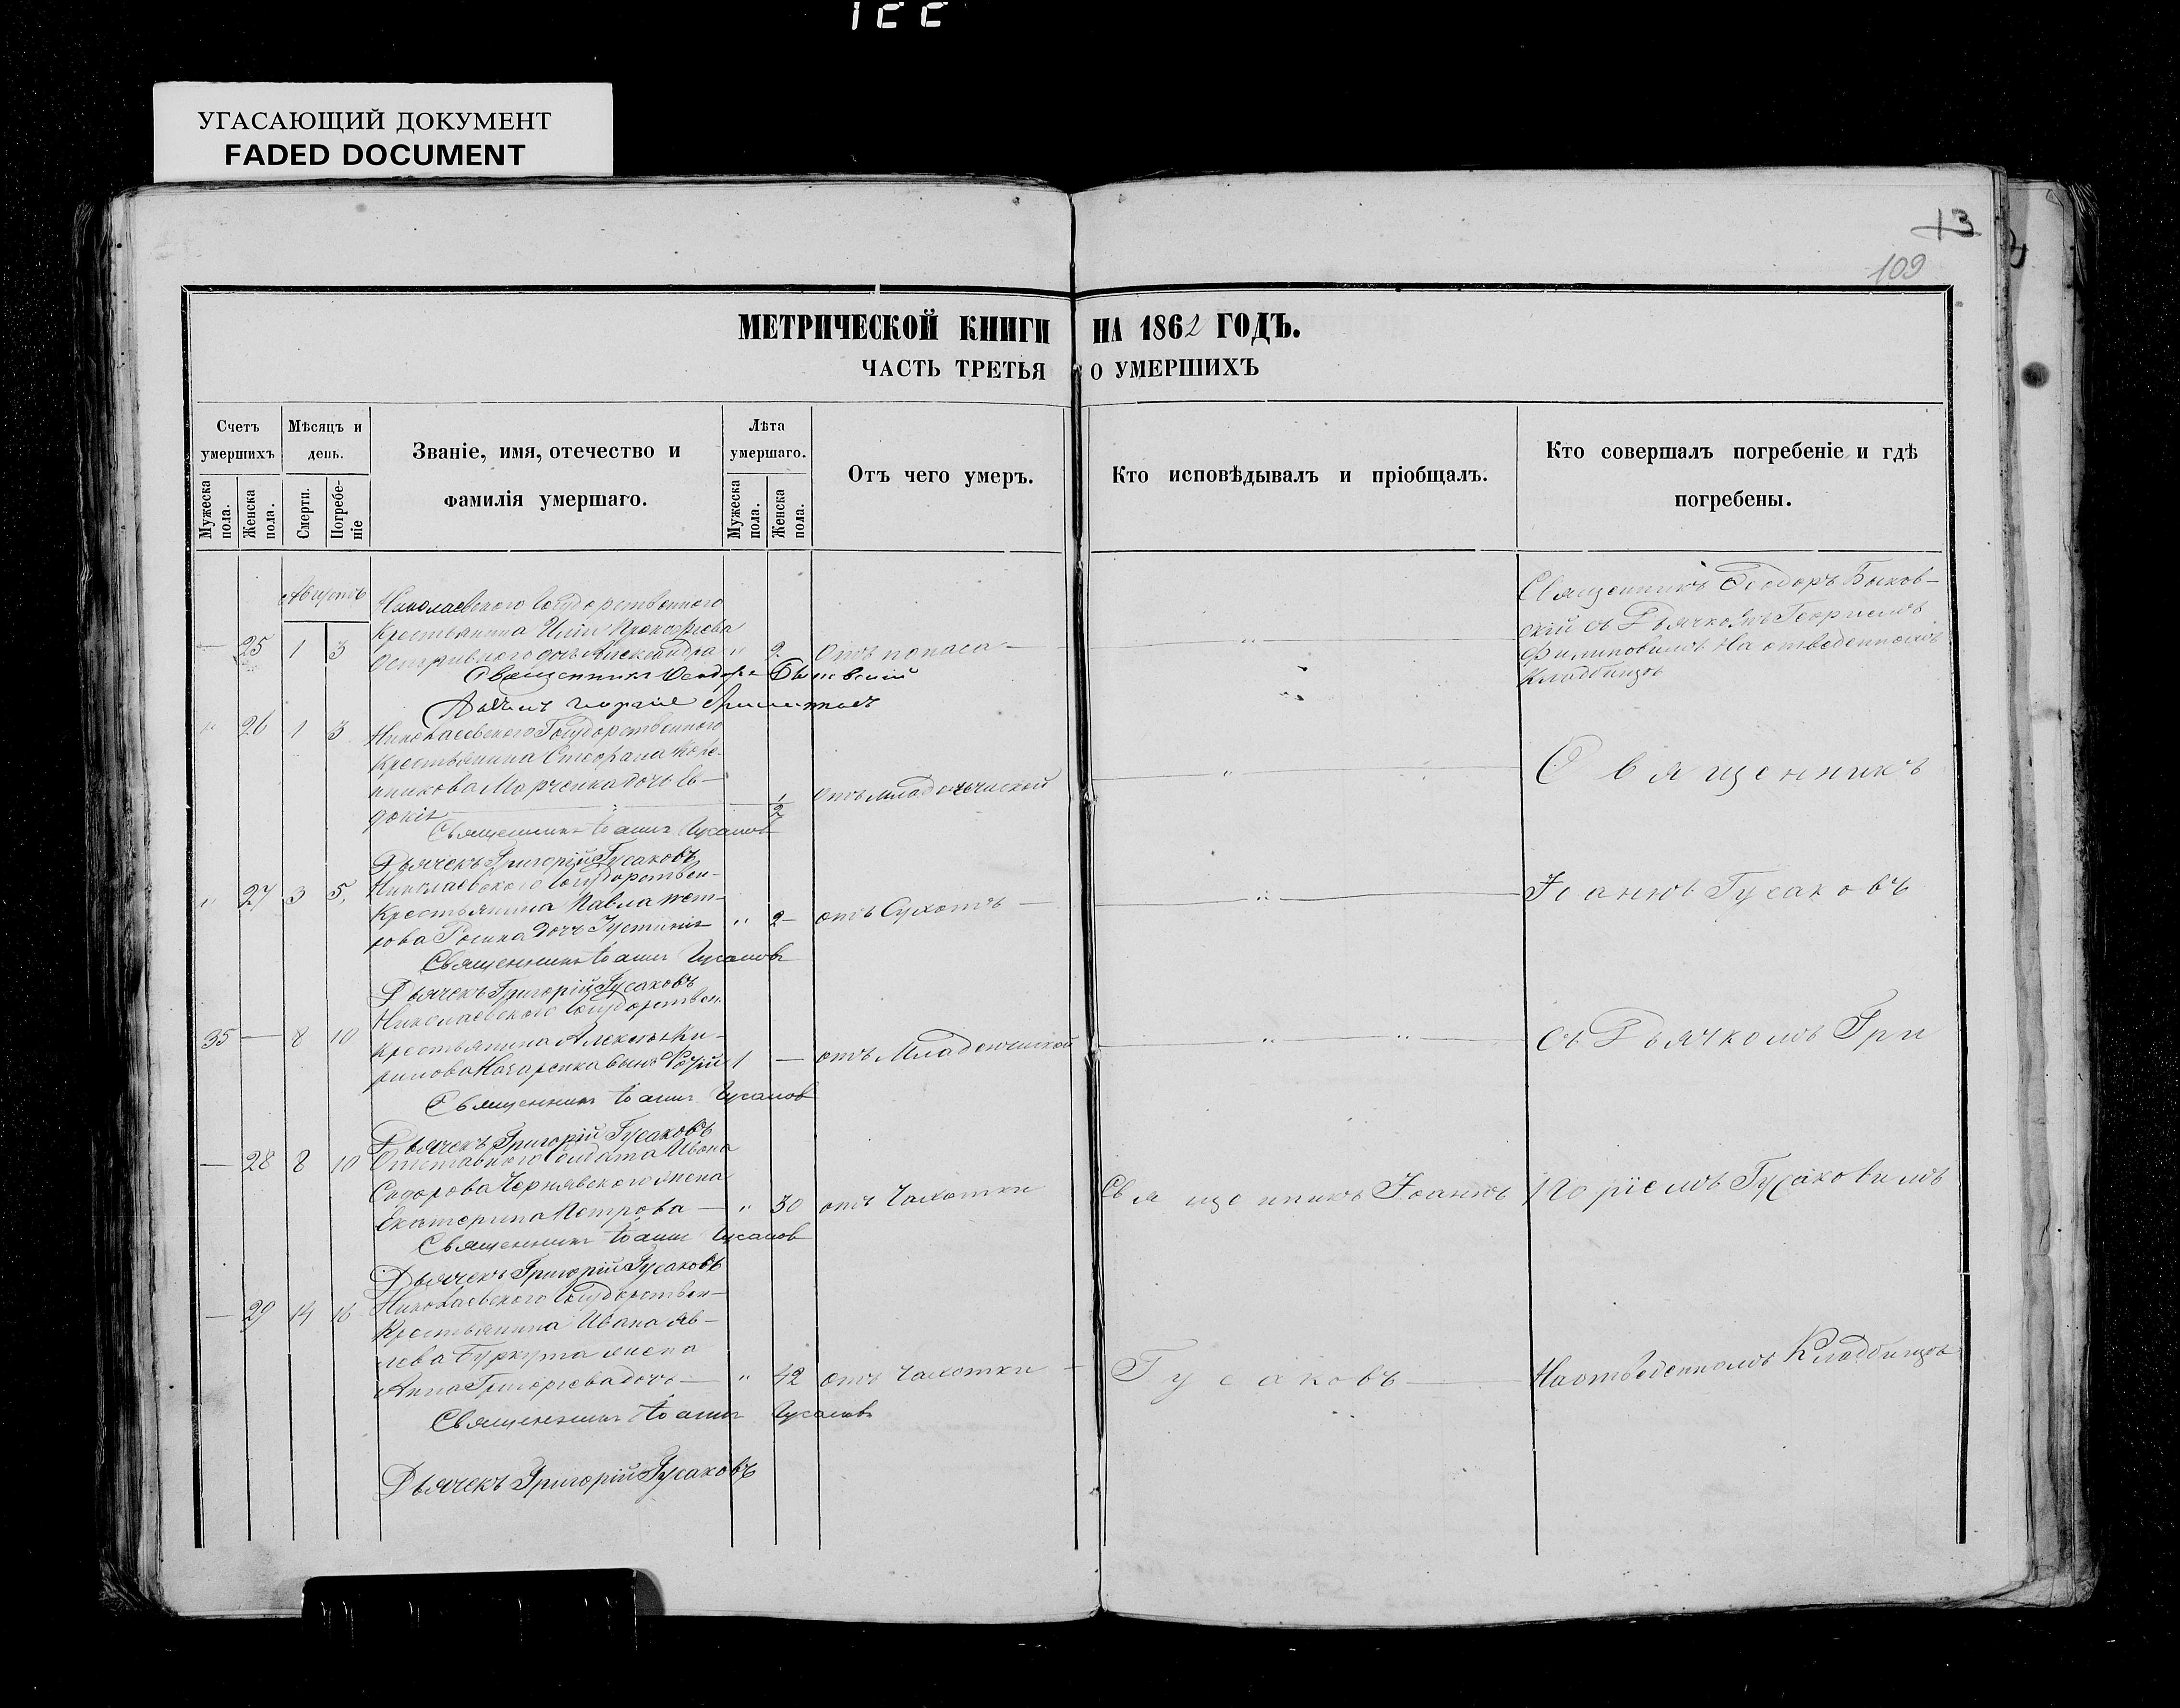 УГАСАЮЩИЙ ДОКУМЕНТ
FADED DOCUMENT
13
109
МЕТРИЧЕСКОЙ КНИГИ НА 1862 ГОДЪ.
ЧАСТЬ ТРЕТЬЯ О УМЕРШИХЪ
Счетъ умершихъ
Мѣсяцъ и день.
Званіе, имя, отечество и фамилія умершаго.
Лѣта умершаго.
Отъ чего умеръ.
Кто исповѣдывалъ и пріобщалъ.
Кто совершалъ погребеніе и гдѣ погребены.
Мужеска пола.
Женска пола.
Смерти.
Погребеніе
Мужеска пола.
Женска пола.
Августъ
Николаевского Государственного
Крестьянина Иліи Прокофіева
25 1 3 дочь Александра " 2 Отъ поноса
Священникъ Ѳеодоръ Быковскій
Священникъ Ѳеодоръ Быков-
скій съ Дьячкомъ Георгіемъ
Филиповымъ На отведенномъ
Кладбищѣ
" 26 1 3 Николаевского Государственного
Крестьянина Стефана
Марченка дочь Ев-
докія 1/2 Отъ младенческой
Священникъ Іоаннъ Гусаковъ
Дьячекъ Григорій Гусаковъ
Священникъ
" 27 3 5 Николаевского Государствен-
Крестьянина Павла Пет-
рова дочь Іустинія " 2 отъ Сухотъ
Священникъ Іоаннъ Гусаковъ
Дьячекъ Григорій Гусаковъ
Іоаннъ Гусаковъ
35 8 10 Николаевского Государствен.
Крестьянина Алексѣя Ки-
рилова Назаренка сынъ 1 отъ Младенческой
Священникъ Іоаннъ Гусаковъ
Дьячекъ Григорій Гусаковъ
съ Дьячкомъ Гри
28 8 10 Отставного Солдата Ивана
Сидорова Чернявского жена
Екатерина Петрова " 30 отъ Чахотки
Священникъ Іоаннъ Гусаковъ
Дьячекъ Григорій Гусаковъ
Священникъ Іоаннъ
горіемъ Гусаковымъ
29 14 16 Николаевского Государствен-
Крестьянина Ивана Яков-
лева Буркута жена
Анна Григорьева дочь " 42 отъ Чахотки
Священникъ Іоаннъ Гусаковъ
Дьячекъ Григорій Гусаковъ
Гусаковъ
На отведенномъ Кладбищѣ